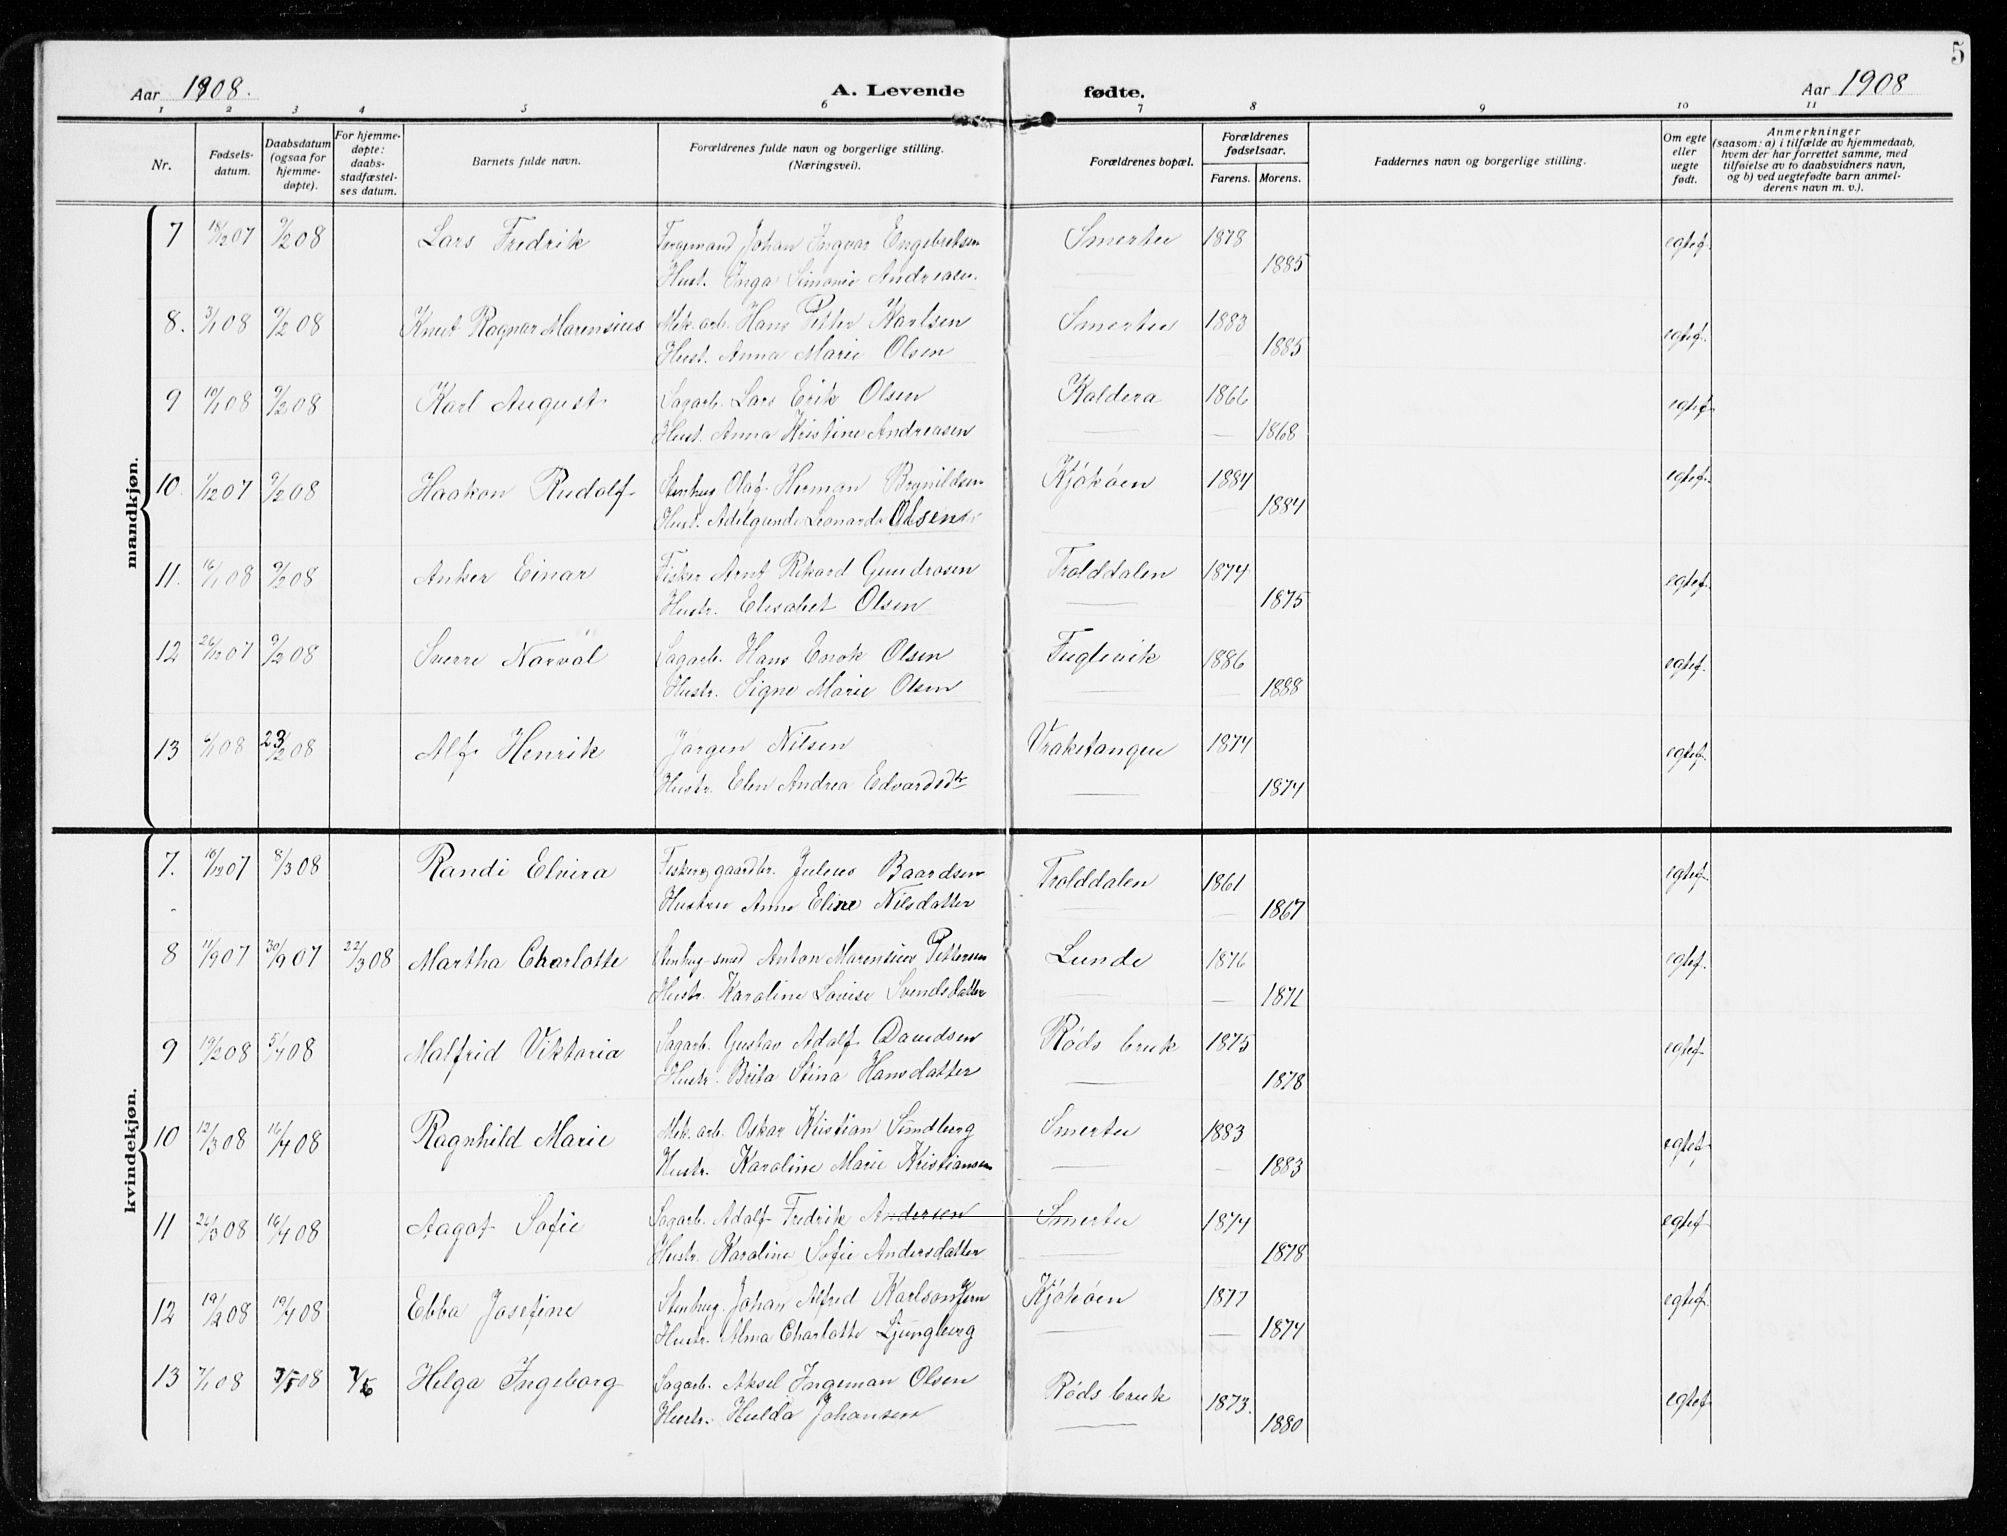 5
Aar 1908. A. Levende fødte. Aar 1908
1 2 3 4 5 6 7 8 9 10 11
Nr. Fødsels-datum. Daabsdatum (ogsaa for hjemme-døpte). For hjemme-døpte: daabs-stadfæstel-ses datum. Barnets fulde navn. Forældrenes fulde navn og borgerlige stilling. (Næringsvei). Forældrenes bopæl. Forældrenes fødselsaar. Farens. Morens. Faddernes navn og borgerlige stilling. Om egte eller uegte født. Anmerkninger (saasom: a) i tilfælde av hjemmedaab, hvem der har forrettet samme, med tilføielse av to daabsvidners navn, og b) ved uegtefødte barn anmel-derens navn m. v.).
mandkjøn.
7 18/12 07 9/2 08 Lars Fredrik Johan Ingvar Engebretsen Smertu 1878 egtef.
Hust. Inga Andreasen 1885
8. 3/1 08 9/2 08 Knut Ragnar Marensius Mek. arb. Hans Petter Karlsen Smertu 1883 egtef.
Hust. Anna Marie Olsen 1885
9 19/1 08 9/2 08 Karl August Sagarb. Lars Erik Olsen Kaldera 1866 egtef.
Hust. Anna Kristine Andreasen 1868
10. 1/12 07 9/2 08 Haakon Rudolf Stenhug Olaf Herman Brynildsen Kjøkøen 1884 egtef.
Hust. Adelgunde Leonarde Olsen 1884
11. 16/1 08 9/2 08 Anker Einar Fisker Arnt Rikard Gundrosen Trolddalen 1874 egtef.
Hustr. Elisabet Olsen 1875
12 26/12 07 9/2 08 Sverre Norval Sagarb. Hans Enok Olsen Fuglevik 1886 egtef.
Hustr. Signe Marie Olsen 1888
13 6/1 08 23/2 08 Alf Henrik Jørgen Nilsen Vraketangen 1874 egtef.
Hustr. Elen Andrea Edvardsdtr 1874
kvindekjøn.
7. 16/12 07 8/3 08 Randi Elvira Fisker, gaardbr. Julius Baardsen Trolddalen 1861 egtef.
Hustru Anne Eline Nilsdatter 1867
8 11/9 07 30/9 07 22/3 08 Martha Charlotte Stenhug. smed Anton Marensius Pettersen Lunde 1876 egtef.
Hustr. Karoline Lovise Svendsdatter 1871
9 19/2 08 5/4 08 Malfrid Viktoria Sagarb. Gustav Adolf Davidsen Røds bruk 1875 egtef.
Hustr. Brita Stina Hansdatter 1878
10 12/3 08 16/4 08 Ragnhild Marie Mek. arb. Oskar Kristian Sundberg Smertu 1883 egtef.
Hustr. Karoline Marie Kristiansen 1883
11 26/3 08 16/4 08 Aagot Sofie Sagarb. Adolf Fredrik Andersen Smertu 1874 egtef.
Hustr. Karoline Sofie Andersdatter 1878
12 19/2 08 19/4 08 Ebba Josefine Stenhug. Johan Alfred Karlson Kjøkøen 1877 egtef.
Hustr. Alma Charlotte Ljungberg 1874
13 7/1 08 7/5 08 Helga Ingeborg Sagarb. Aksel Ingeman Olsen Røds bruk 1873. egtef.
Hustr. Hulda Johansen 1880